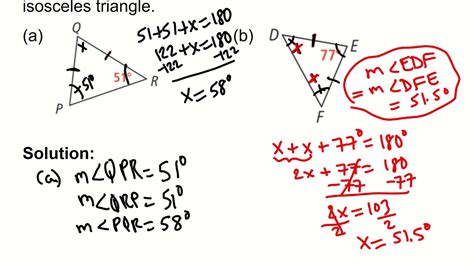 isosceles triangle.
(a)
Q
P
R
51°
51°
x
51+51+x=180
122+x=180
-122 -122
x=58°
(b)
D
E
F
77°
x
x
m∠EDF
= m∠DFE
= 51.5°
x + x + 77° = 180°
2x + 77 = 180
-77 -77
2x = 103
2 2
x = 51.5°
Solution:
(a) m∠QPR = 51°
m∠QRP = 51°
m∠PQR = 58°